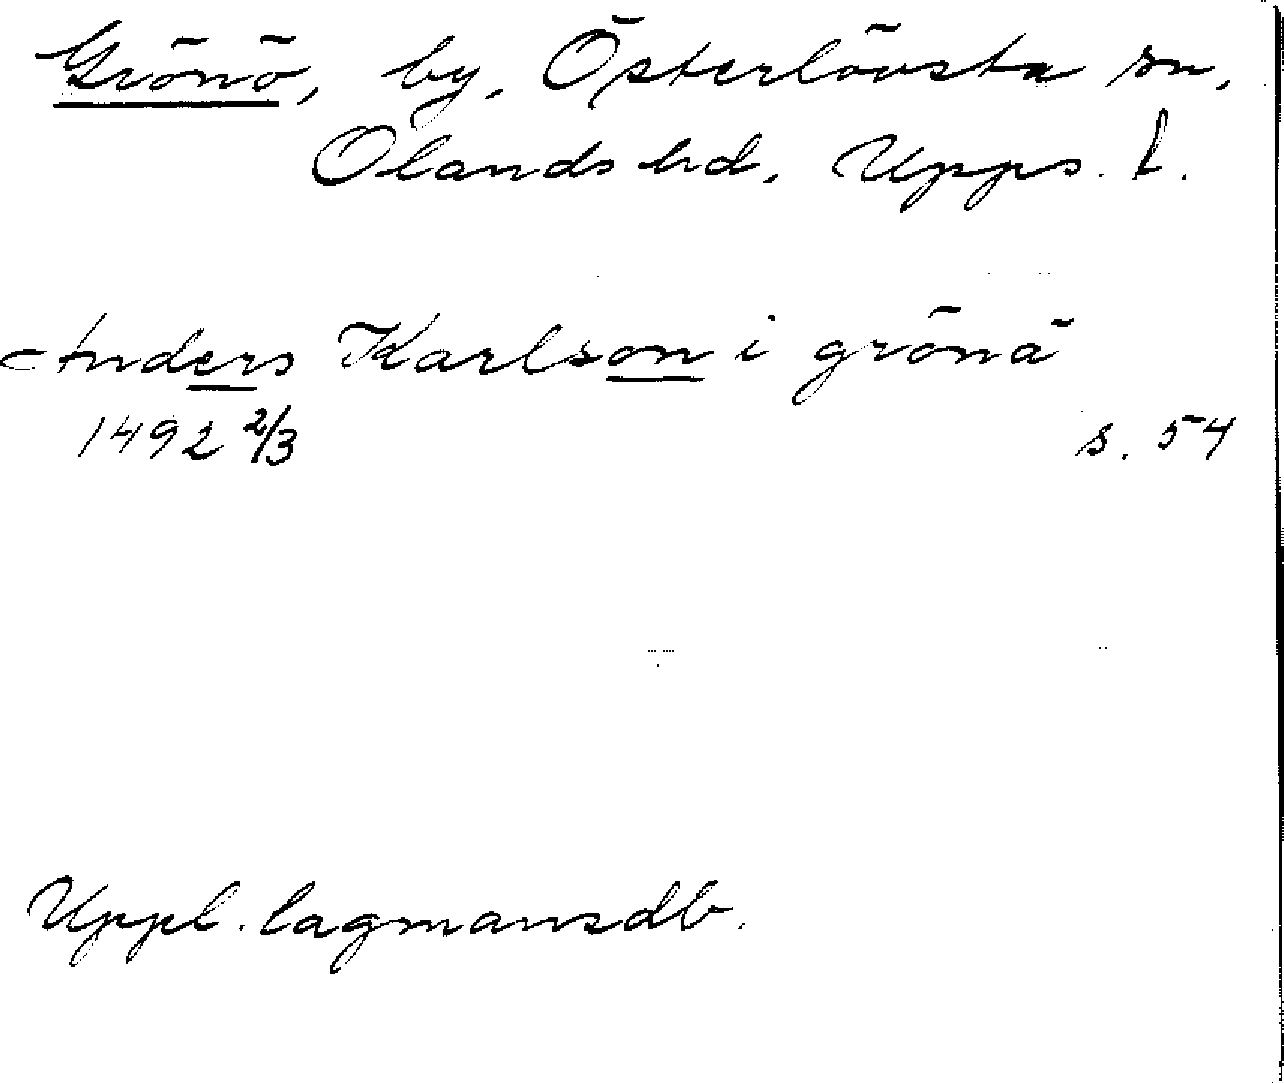 Grönö, by, Österlövsta sn,
Olands hd, Upps. l.
Anders Karlson i grönä
1492 2/3 s. 54
Uppl. lagmansdb.